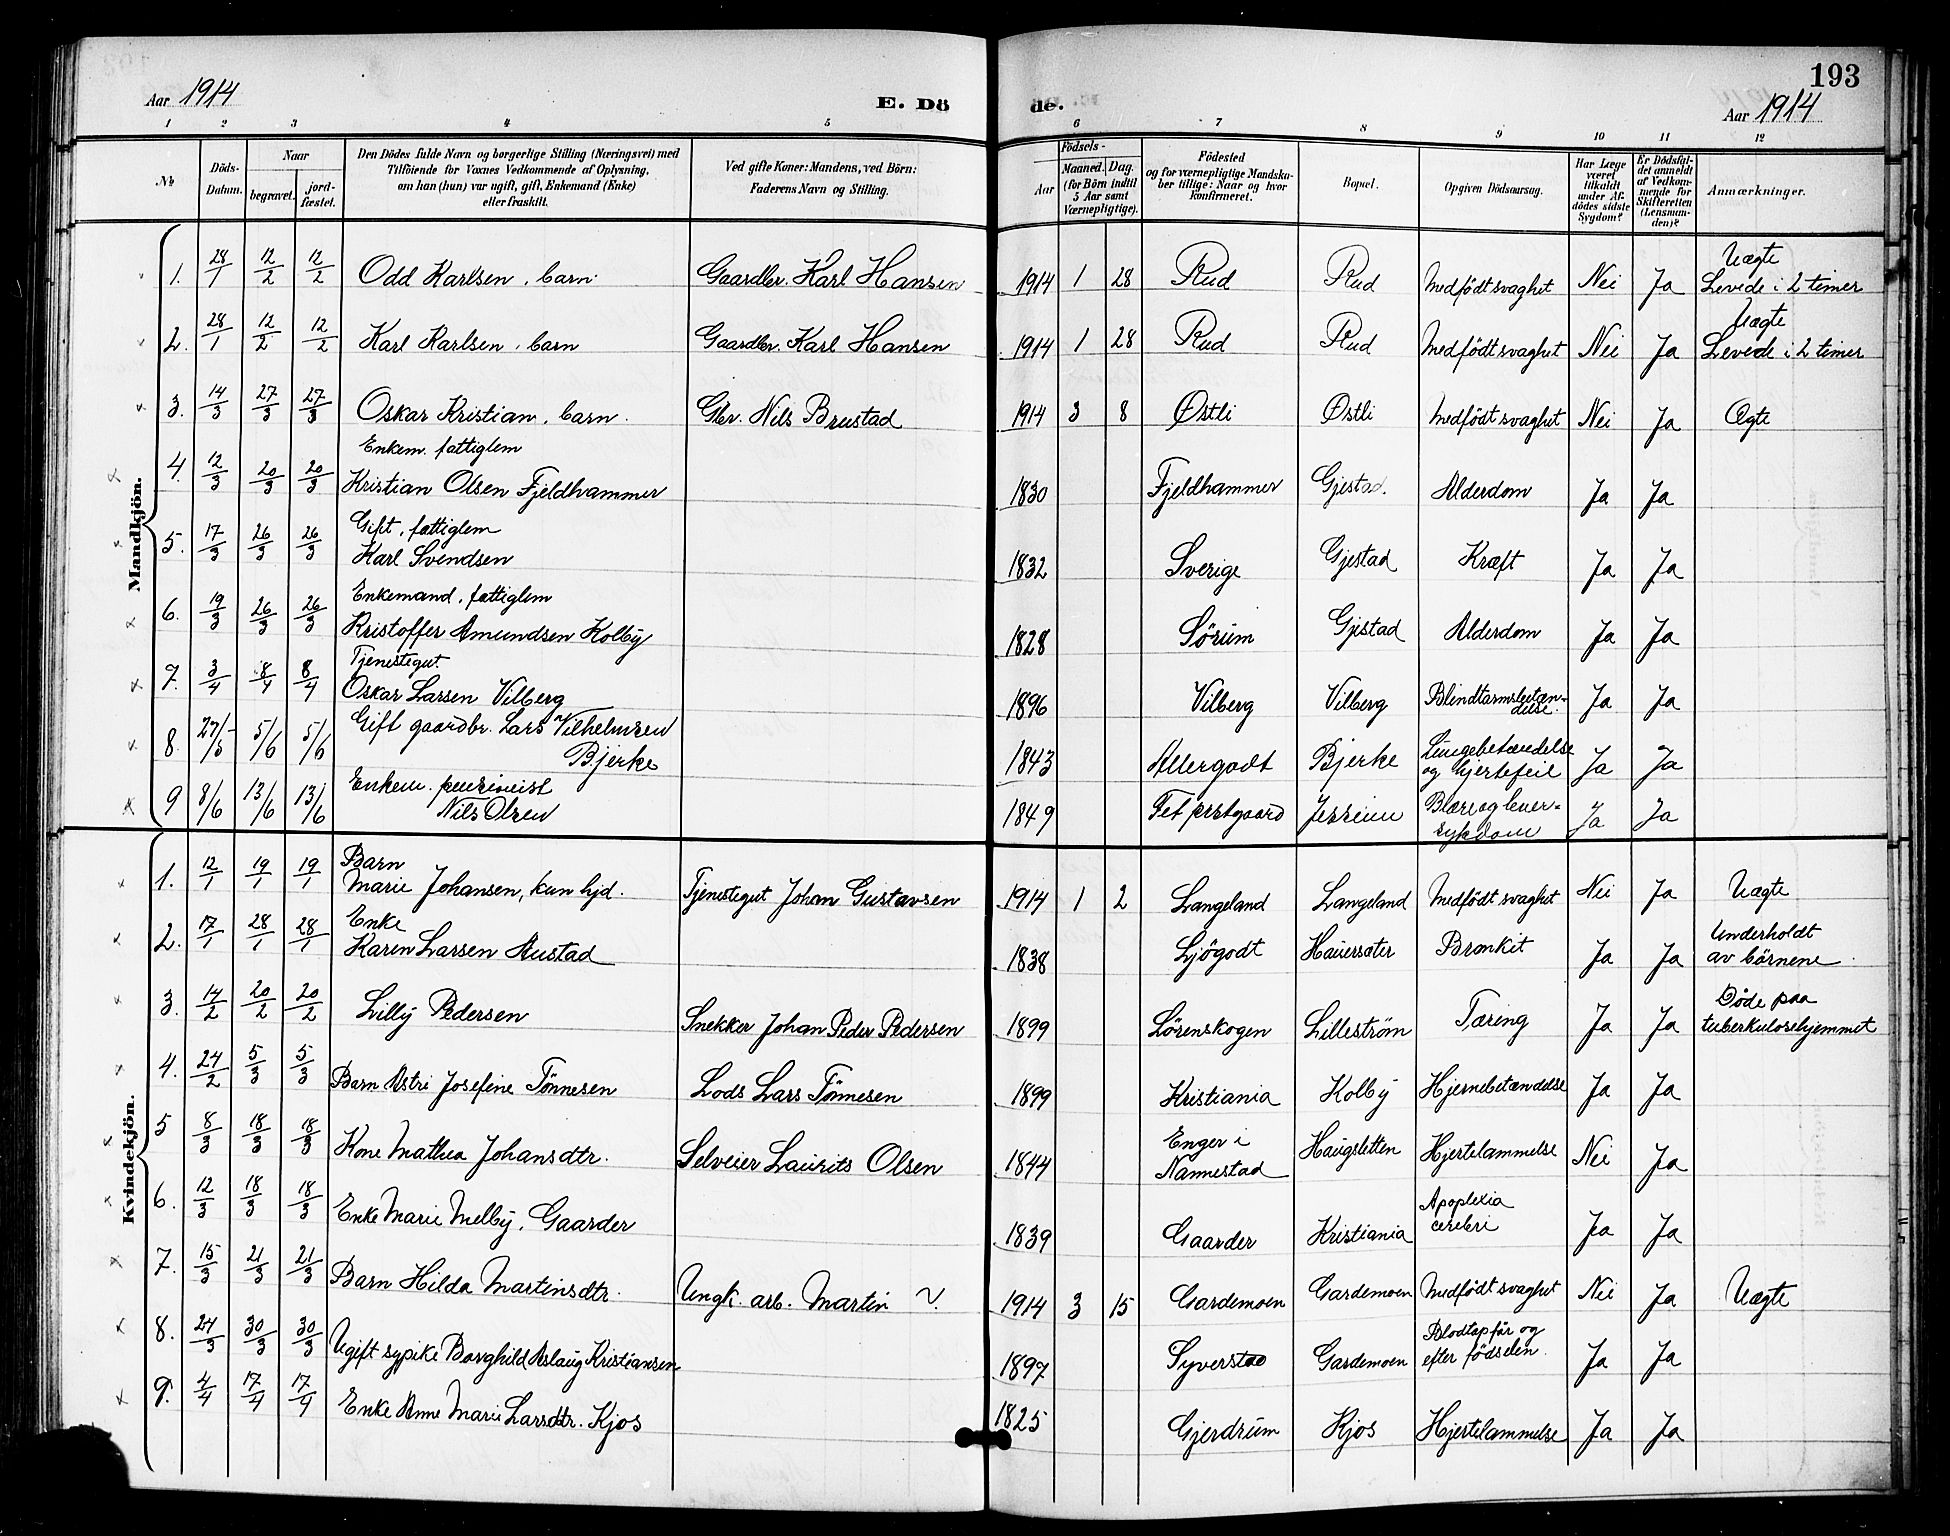 193
Aar 1914
E. Dö
de.
Aar 1914
1 2 3 4 5 6 7 8 9 10 11 12
No
Döds-Datum.
Naar
begravet.
jord-fæstet.
Den Dödes fulde Navn og borgerlige Stilling (Næringsvei) med
Tilföiende for Voxnes Vedkommende af Oplysning,
om han (hun) var ugift, gift, Enkemand (Enke)
eller fraskilt.
Ved gifte Koner: Mandens, ved Börn:
Faderens Navn og Stilling.
Födsels-
Aar
Maaned. Dag.
(for Börn indtil
5 Aar samt
Værnepligtige).
Födested
og for værnepligtige Mandska-
ber tillige: Naar og hvor
konfirmeret.
Bopæl.
Opgiven Dödsaarsag.
Har Læge
været
tilkaldt
under Af-
dödes sidste
Sygdom?
Er Dödsfal-
det anmeldt
af Vedkom-
mende for
Skifteretten
(Lensman-
den)?
Anmærkninger.
Mandkjön.
1. 28/1 12/2 12/2 Odd Karlsen, barn. Gaardbr. Karl Hansen 1914 1 28 Rud Rud Medfödt svaghet Nei Ja Uægte Levede i 2 timer
2. 28/1 12/2 12/2 Karl Karlsen, barn Gaardbr. Karl Hansen 1914 1 28 Rud Rud Medfödt svaghet Nei Ja Uægte Levede i 2 timer
3. 14/3 27/3 27/3 Oskar Kristian, barn. Gbr. Nils Brustad 1914 3 8 Østli Østli Medfödt svaghet Nei Ja Ægte
4. 12/3 20/3 20/3 Enkem. fattiglem
Kristian Olsen Fjeldhammer 1830 Fjeldhammer Gjestad. Alderdom Ja Ja
5. 17/3 26/3 26/3 Gift, fattiglem
Karl Svendsen 1832 Sverige Gjestad Kræft Ja Ja
6. 19/3 26/3 26/3 Enkemand, fattiglem
Kristoffer Amundsen Kolby 1828 Sörum Gjestad Alderdom Ja Ja
7. 3/4 8/4 8/4 Tjenestegut.
Oskar Larsen Vilberg 1896 Vilberg Vilberg Blindtarmsbetæn-
delse. Ja Ja
8. 27/5 5/6 5/6 Gift gaardbr. Lars Vilhelmsen
Bjerke 1843 Allergodt Bjerke Lungebetændelse
og hjertefeil Ja Ja
9 8/6 13/6 13/6 Enkem. pensionist
Nils Olsen 1849 Fet prstgaard Jessium Blære og lever-
sykdom Ja Ja
Kvindekjön.
1. 12/1 19/1 19/1 Barn
Marie Johansen, kun hjd. Tjenestegut Johan Gustavsen 1914 1 2 Langeland Langeland Medfödt svaghet Nei Ja Uægte
2. 17/1 28/1 28/1 Enke
Karen Larsen Austad 1838 Ljögodt Hauersæter Bronkit Ja Ja Underholdt
av börnene.
3. 14/2 20/2 20/2 Lilly Pedersen Snekker Johan Peder Pedersen 1899 Lörenskogen Lilleström Tæring Ja Ja Döde paa
tuberkulosehjemmet
4. 24/2 5/3 5/3 Barn Astri Josefine Tönnesen Lods Lars Tönnesen 1899 Kristiania Kolby Hjernebetændelse Ja Ja
5 8/3 18/3 18/3 Kone Mathea Johansdtr. Selveier Laurits Olsen 1844 Enger i
Nannestad Haugsletten Hjertelammelse Nei Ja
6. 12/3 18/3 18/3 Enke Marie Melby, Gaarder 1839 Gaarder Kristiania Apoplexia
cerebri Ja Ja
7. 15/3 21/3 21/3 Barn Hilda Martinsdtr. Ungk. arb. Martin N. 1914 3 15 Gardemoen Gardemoen Medfödt svaghet Nei Ja Uægte
8. 24/3 30/3 30/3 Ugift sypike Borghild Aslaug Kristiansen 1897 Syverstad Gardemoen Blodtap för og
efter födselen. Ja Ja
9. 4/4 17/4 17/4 Enke Anne Marie Larsdtr. Kjos 1825 Gjerdrum Kjos Hjertelammelse Ja Ja